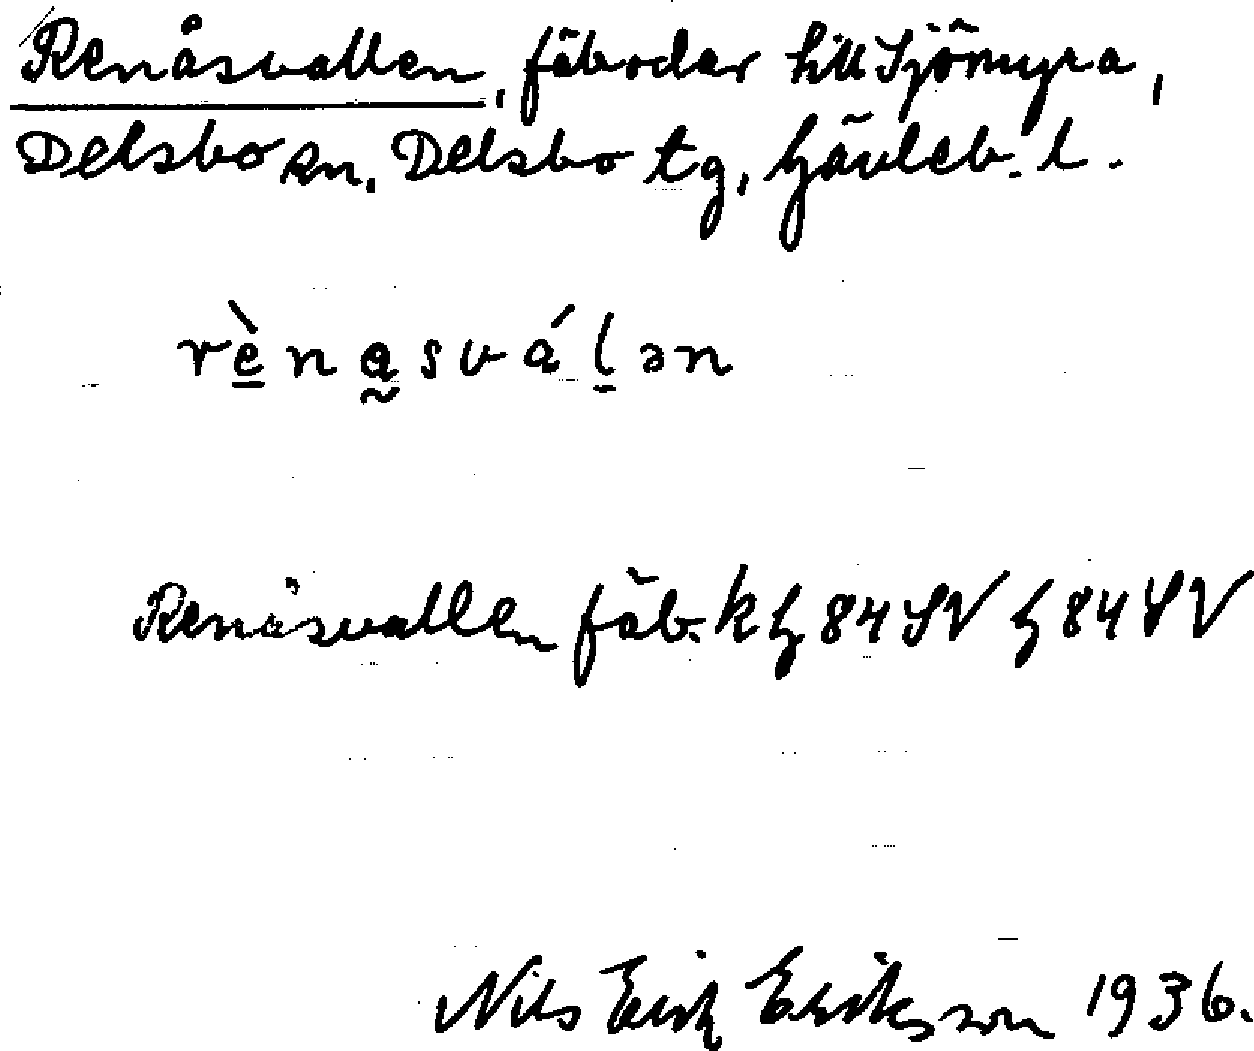 Renåsvallen, fäbodar till Sjömyra,
Delsbo sn, Delsbo tg, Gävleb. l.
rènasválən
Renåsvallen fäb. k G 84 SV G 84 SV
Nils Erik Eriksson 1936.